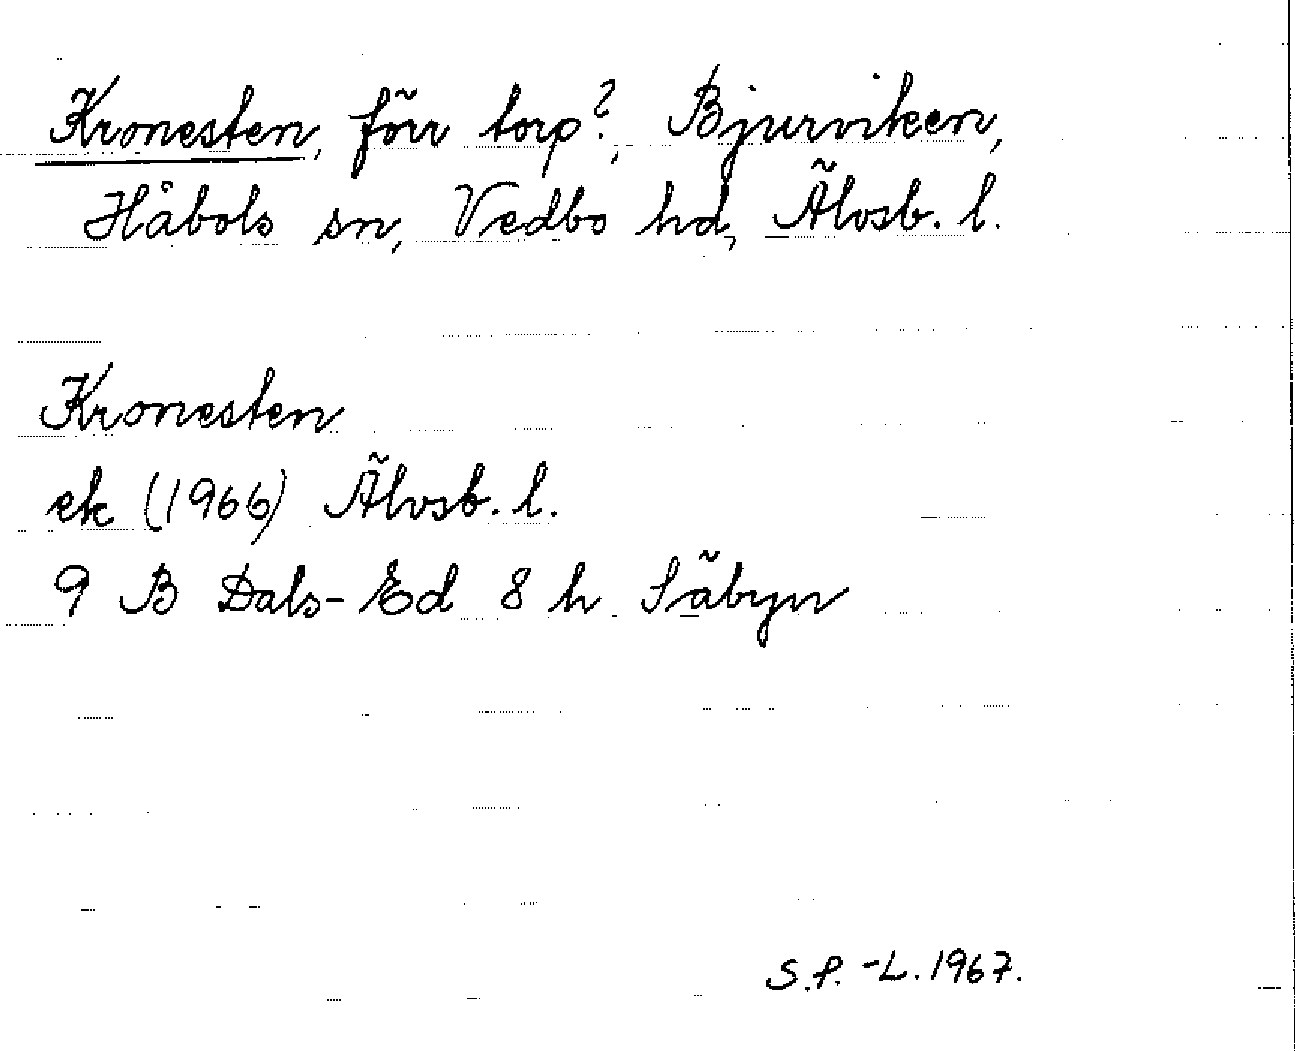 Kronesten, förr torp?, Bjurviken,
Håbols sn, Vedbo hd, Älvsb. l.
Kronesten
ek (1966) Älvsb. l.
9 B Dals-Ed 8 h Säbyn
S.P.-L. 1967.